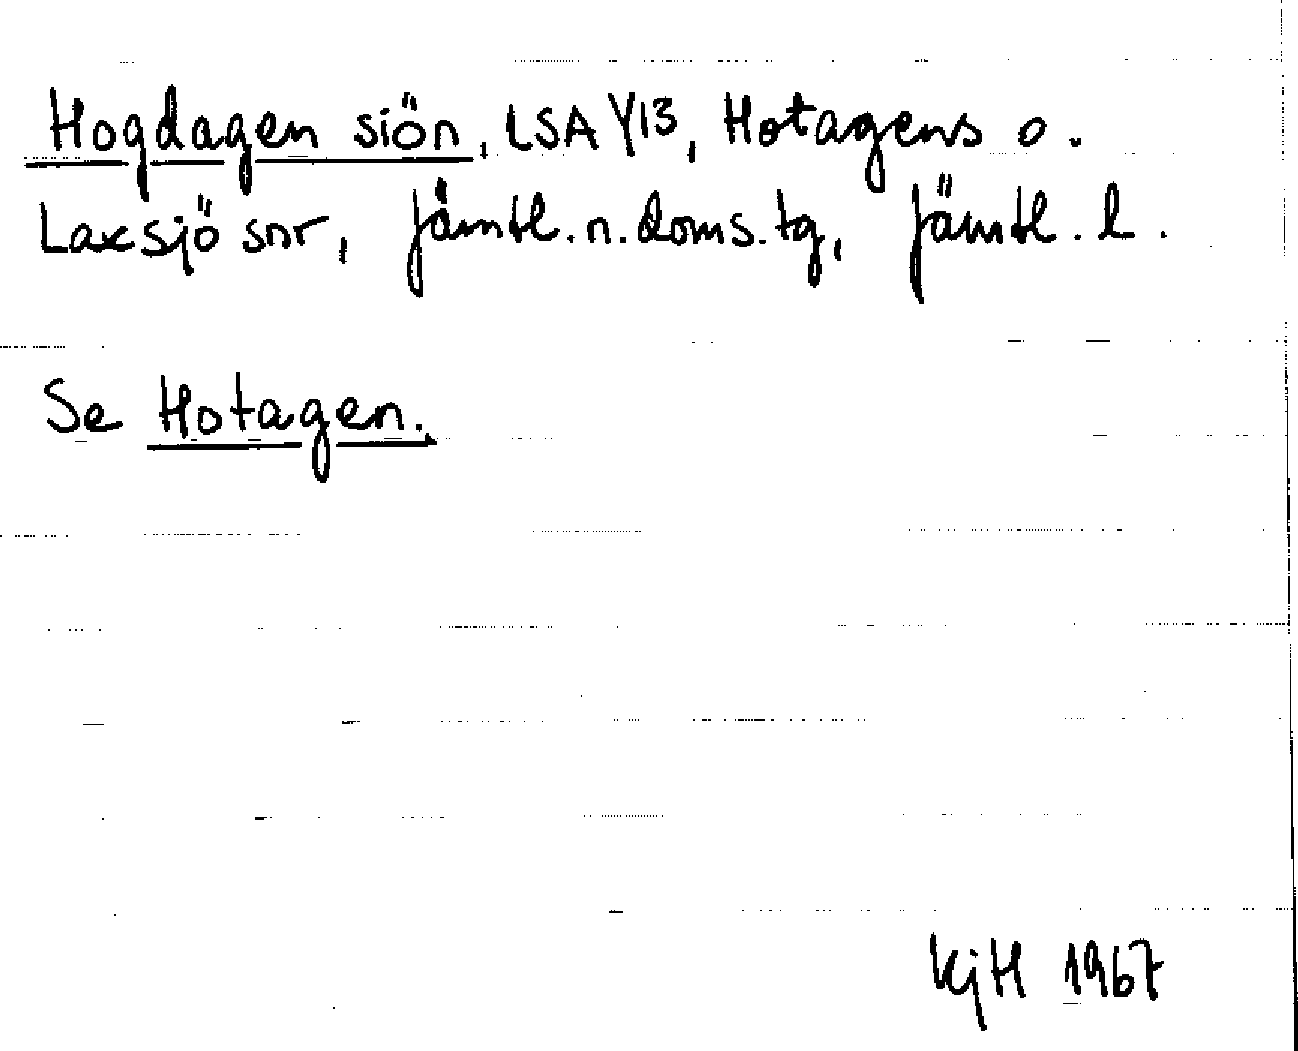 Hogdagen siön, LSA Y13, Hotagens o.
Laxsjö snr, Jämtl. n. doms. tg, Jämtl. l.
Se Hotagen.
KjH 1967